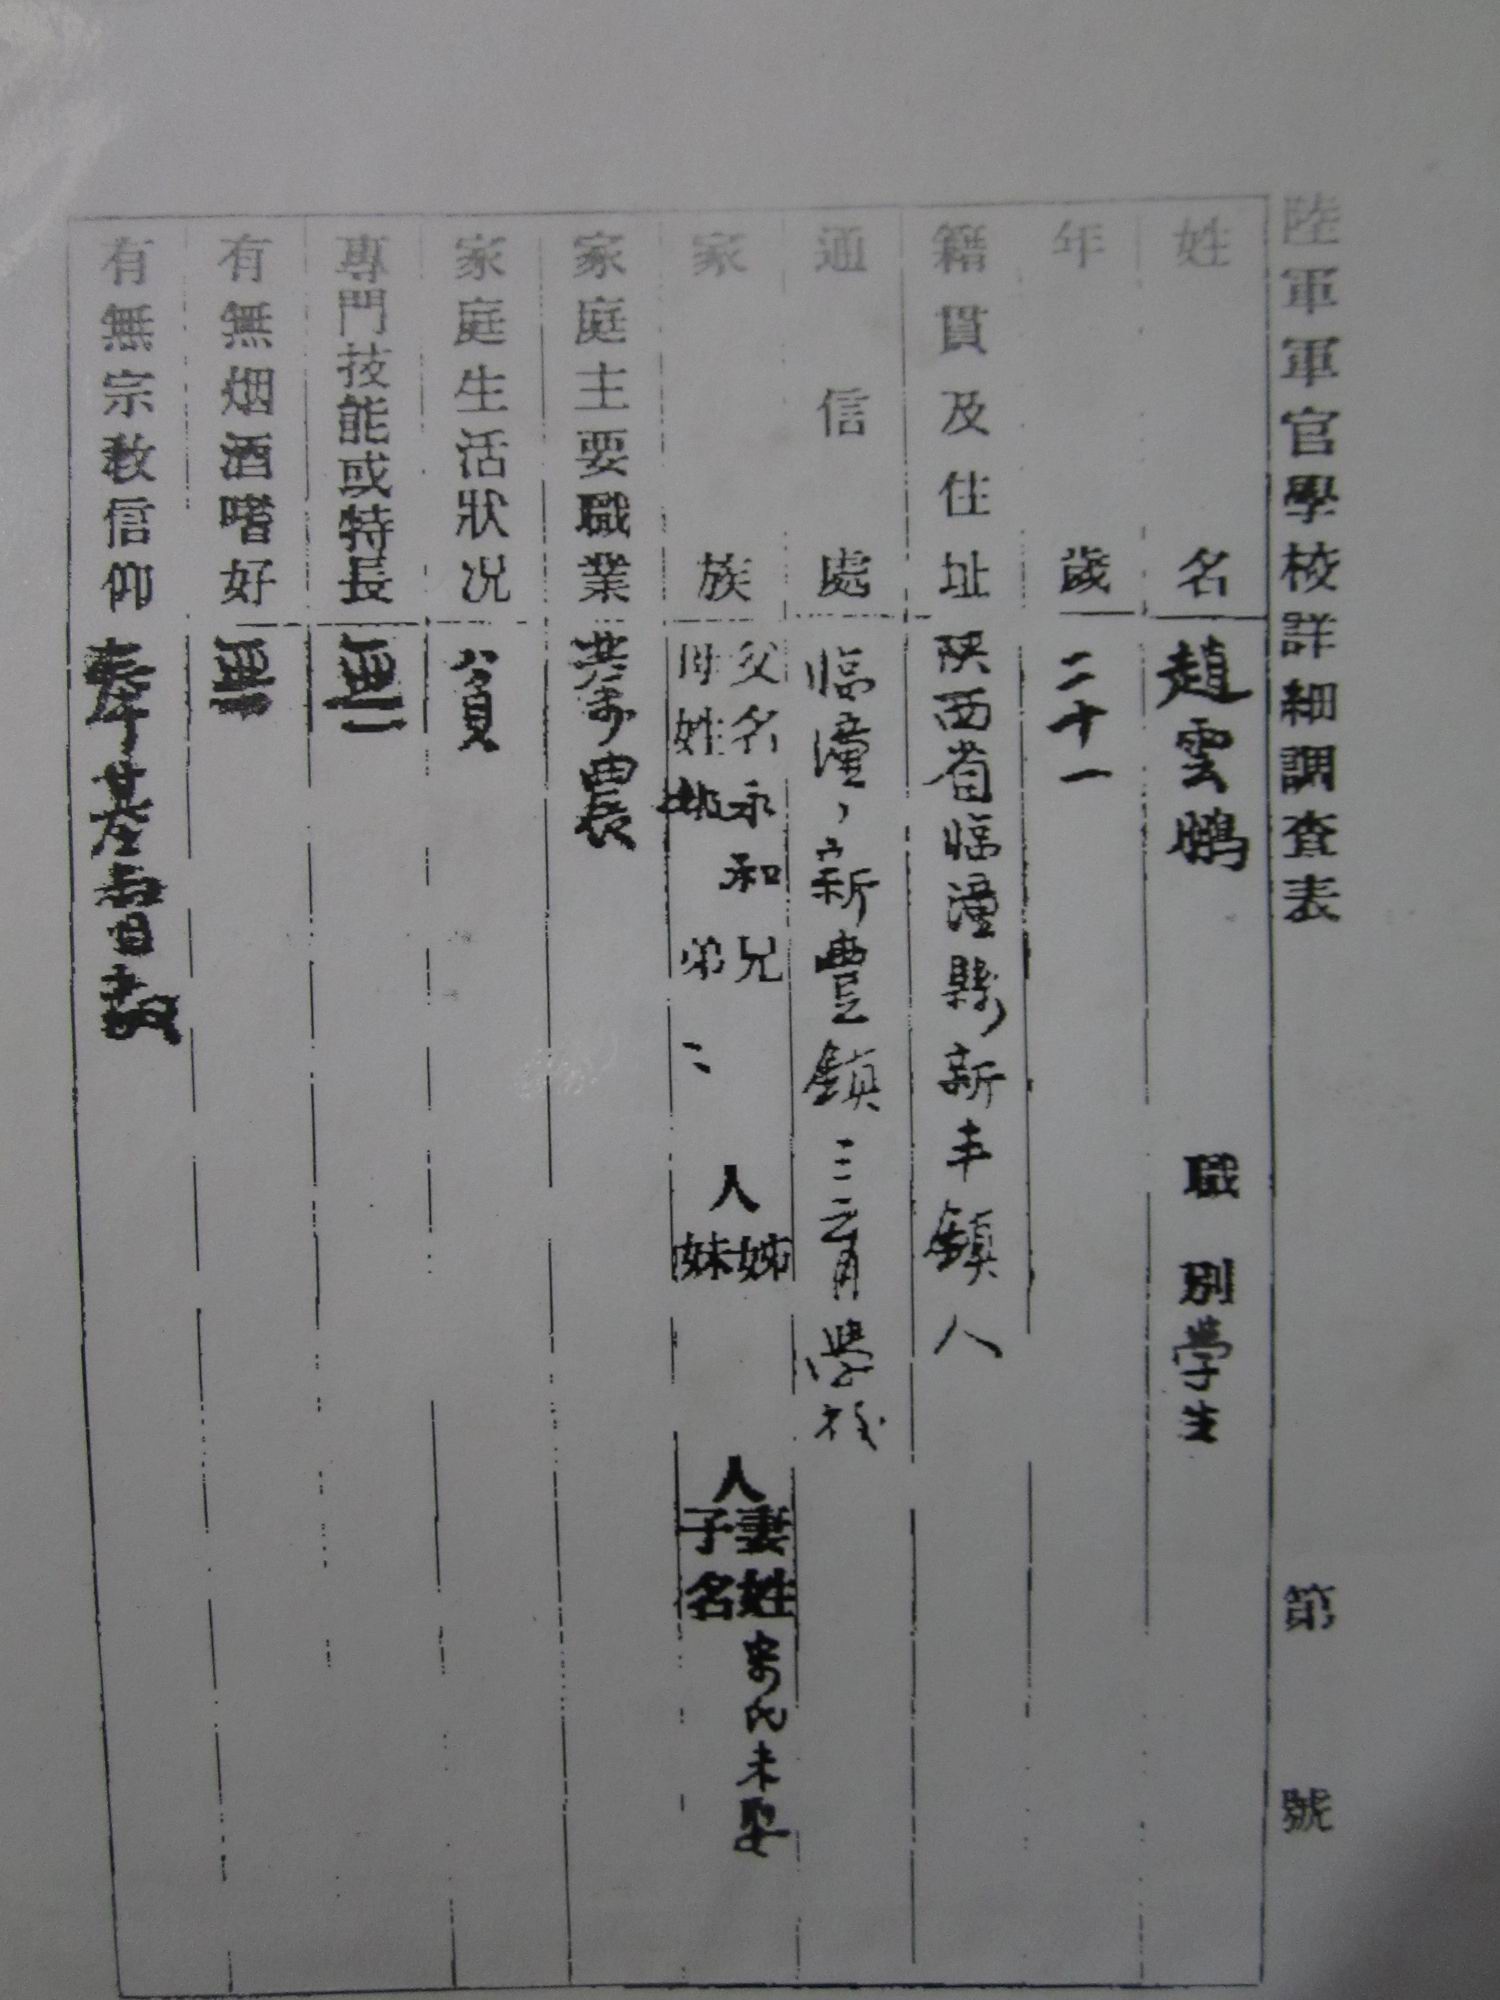 陸軍軍官學校詳細調查表 第 號
姓名 趙雲鵬 職別 學生
年歲 二十一
籍貫及住址 陕西省临潼縣新丰鎮人
通信處 临潼新豊鎮三育學校
家族 父名永和 兄 人 姊 人 妻姓 氏未娶
母姓姚 弟 二 妹 子名
家庭主要職業 農
家庭生活狀况 貧
專門技能或特長 無
有無烟酒嗜好 無
有無宗教信仰 奉基督教